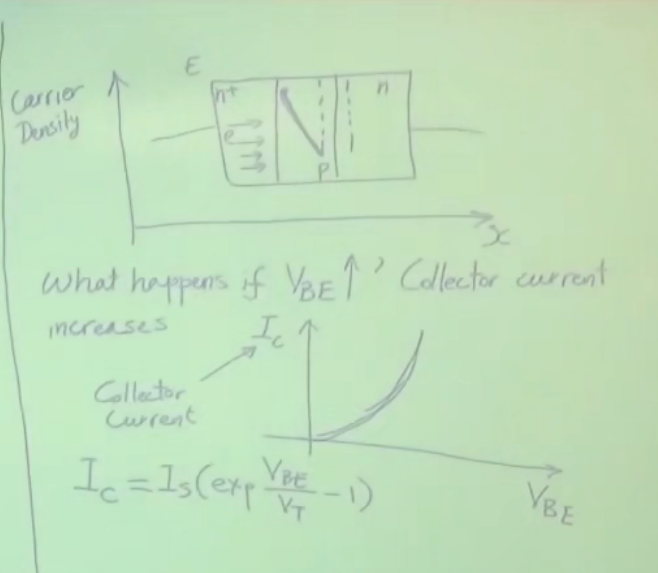 E
Carrier
Density
n+
n
e
P
x
What happens if VBE ↑ ? Collector current
increases
Ic
Collector
Current
Ic = Is(exp VBE/VT - 1)
VBE